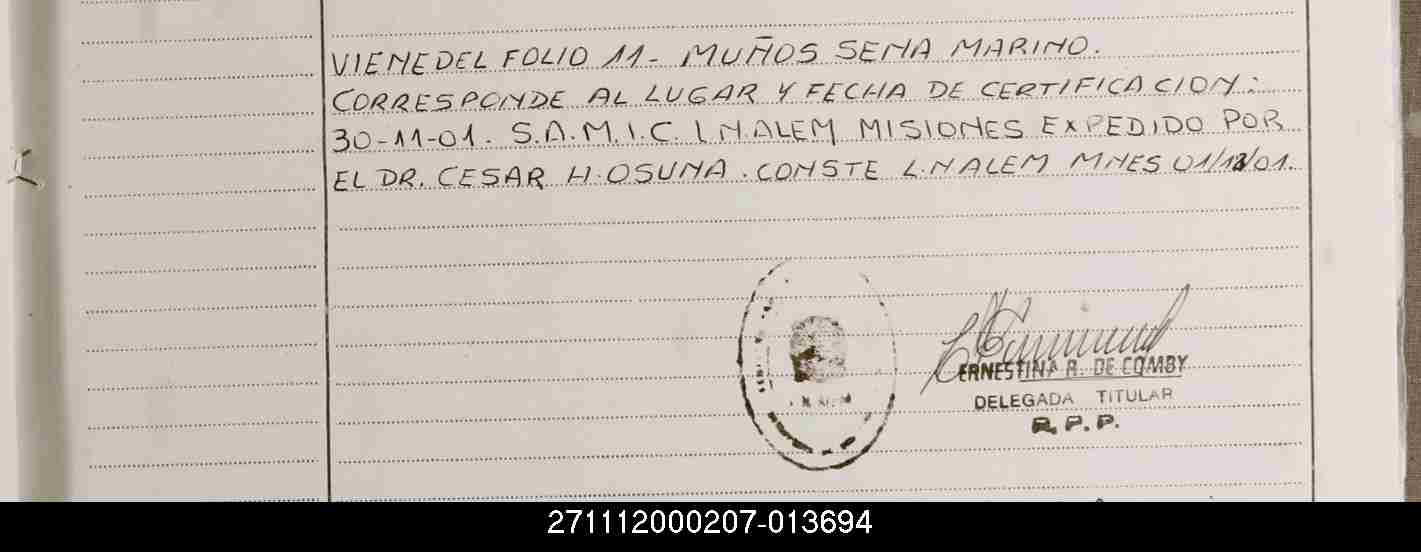 VIENE DEL FOLIO 11- MUÑOS SENA MARINO.
CORRESPONDE AL LUGAR Y FECHA DE CERTIFICACION:
30-11-01. S.A.M.I.C. L.N.ALEM MISIONES EXPEDIDO POR
EL DR. CESAR H. OSUNA. CONSTE L.N ALEM MNES 01/12/01.
ERNESTINA R. DE COMBY
DELEGADA TITULAR
R.P.P.
271112000207-013694